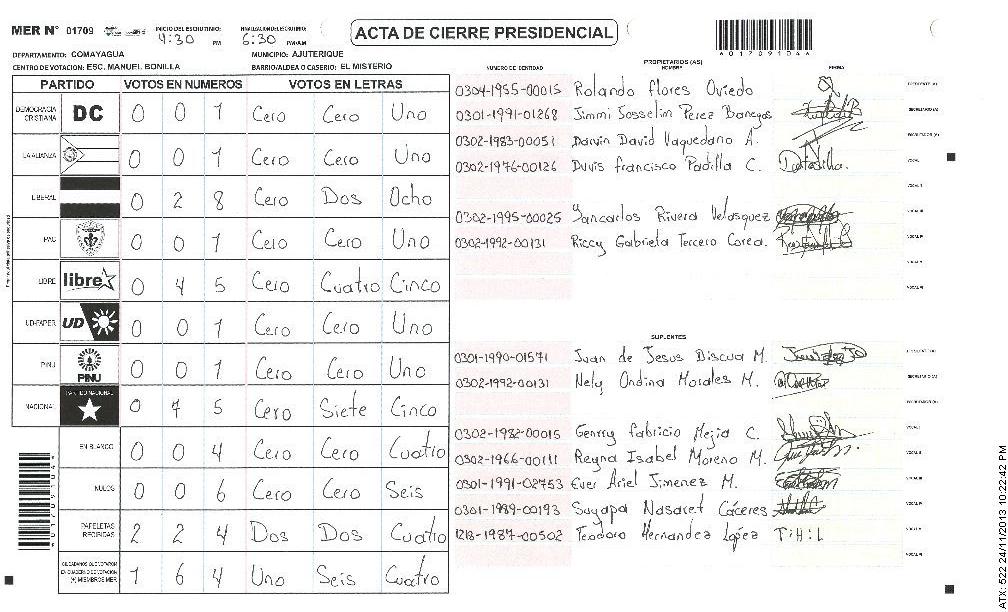 MER N° 01709 INICIO DEL ESCRUTINIO: 4:30 PM FINALIZACION ESCRUTINIO: 6:30 PM/AM ACTA DE CIERRE PRESIDENCIAL
DEPARTAMENTO: COMAYAGUA MUNICIPIO: AJUTERIQUE
CENTRO DE VOTACION: ESC. MANUEL BONILLA BARRIO/ALDEA O CASERIO: EL MISTERIO
PARTIDO VOTOS EN NUMEROS VOTOS EN LETRAS
DEMOCRACIA CRISTIANA DC 0 0 1 Cero Cero Uno
LA ALIANZA 0 0 1 Cero Cero Uno
LIBERAL 0 2 8 Cero Dos Ocho
PAC 0 0 1 Cero Cero Uno
LIBRE libre 0 4 5 Cero Cuatro Cinco
UD-FAPER UD 0 0 1 Cero Cero Uno
PINU PINU 0 0 1 Cero Cero Uno
NACIONAL PARTIDO NACIONAL 0 7 5 Cero Siete Cinco
EN BLANCO 0 0 4 Cero Cero Cuatro
NULOS 0 0 6 Cero Cero Seis
PAPELETAS RECIBIDAS 2 2 4 Dos Dos Cuatro
CIUDADANOS QUE VOTARON EN CUADERNO DE VOTACION (+) MIEMBROS MER 1 6 4 Uno Seis Cuatro
PROPIETARIOS (AS)
NUMERO DE IDENTIDAD NOMBRE FIRMA
0304-1955-00015 Rolando flores Oviedo PRESIDENTE (A)
0301-1991-01268 Jimmi Josselin Perez Banegas SECRETARIO (A)
0302-1983-00051 Darvin David Vaquedano A.
0302-1976-00126 Duvis francisco Padilla C.
0302-1995-00025 Yancarlos Rivera Velasquez
0302-1992-00131 Riccy Gabriela Tercero Corea.
SUPLENTES
0301-1990-01571 Juan de Jesus Discua M. PRESIDENTE (A)
0302-1992-00131 Nely Ondina Morales M. SECRETARIO (A)
0302-1982-00015 Genrry fabricio Mejia C.
0302-1966-00111 Reyna Isabel Moreno M.
0301-1991-02753 Ever Ariel Jimenez M.
0301-1989-00193 Suyapa Nasaret Cáceres
1218-1987-00502 Teodoro Hernandez López T:H:L
4017091044
4017091044
ATX: 522 24/11/2013 10:22:42 PM